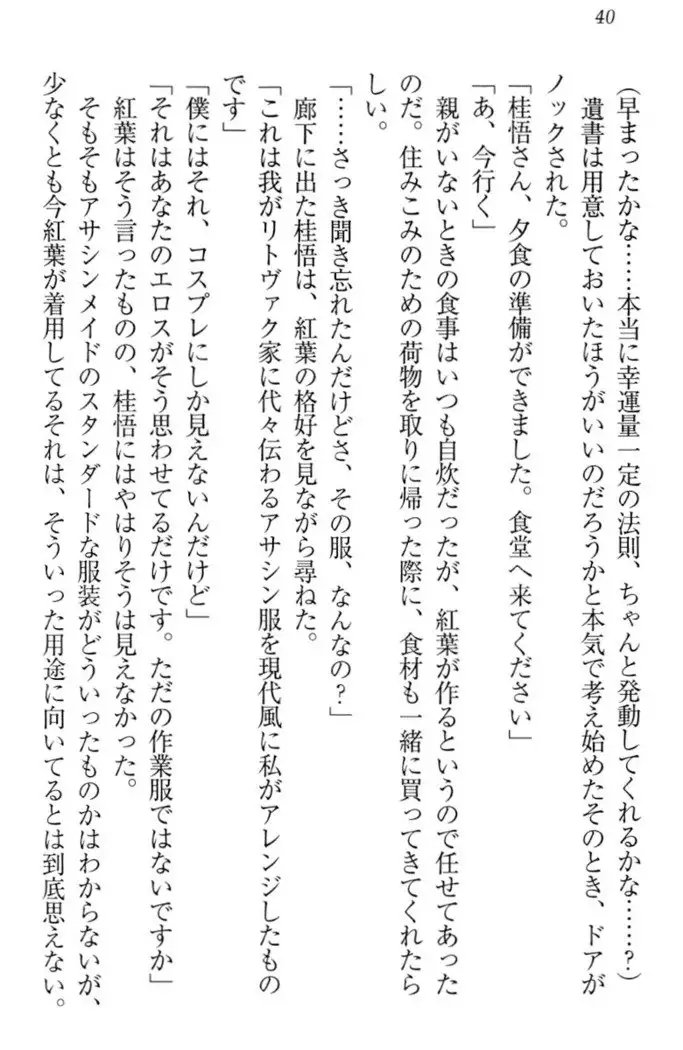 40
（早まったかな……本当に幸運量一定の法則、ちゃんと発動してくれるかな……？）
　遺書は用意しておいたほうがいいのだろうかと本気で考え始めたそのとき、ドアが
ノックされた。
「桂悟さん、夕食の準備ができました。食堂へ来てください」
「あ、今行く」
　親がいないときの食事はいつも自炊だったが、紅葉が作るというので任せてあった
のだ。住みこみのための荷物を取りに帰った際に、食材も一緒に買ってきてくれたら
しい。
「……さっき聞き忘れたんだけどさ、その服、なんなの？」
　廊下に出た桂悟は、紅葉の格好を見ながら尋ねた。
「これは我がリトヴァク家に代々伝わるアサシン服を現代風に私がアレンジしたもの
です」
「僕にはそれ、コスプレにしか見えないんだけど」
「それはあなたのエロスがそう思わせてるだけです。ただの作業服ではないですか」
　紅葉はそう言ったものの、桂悟にはやはりそうは見えなかった。
　そもそもアサシンメイドのスタンダードな服装がどういったものかはわからないが、
少なくとも今紅葉が着用してるそれは、そういった用途に向いてるとは到底思えない。